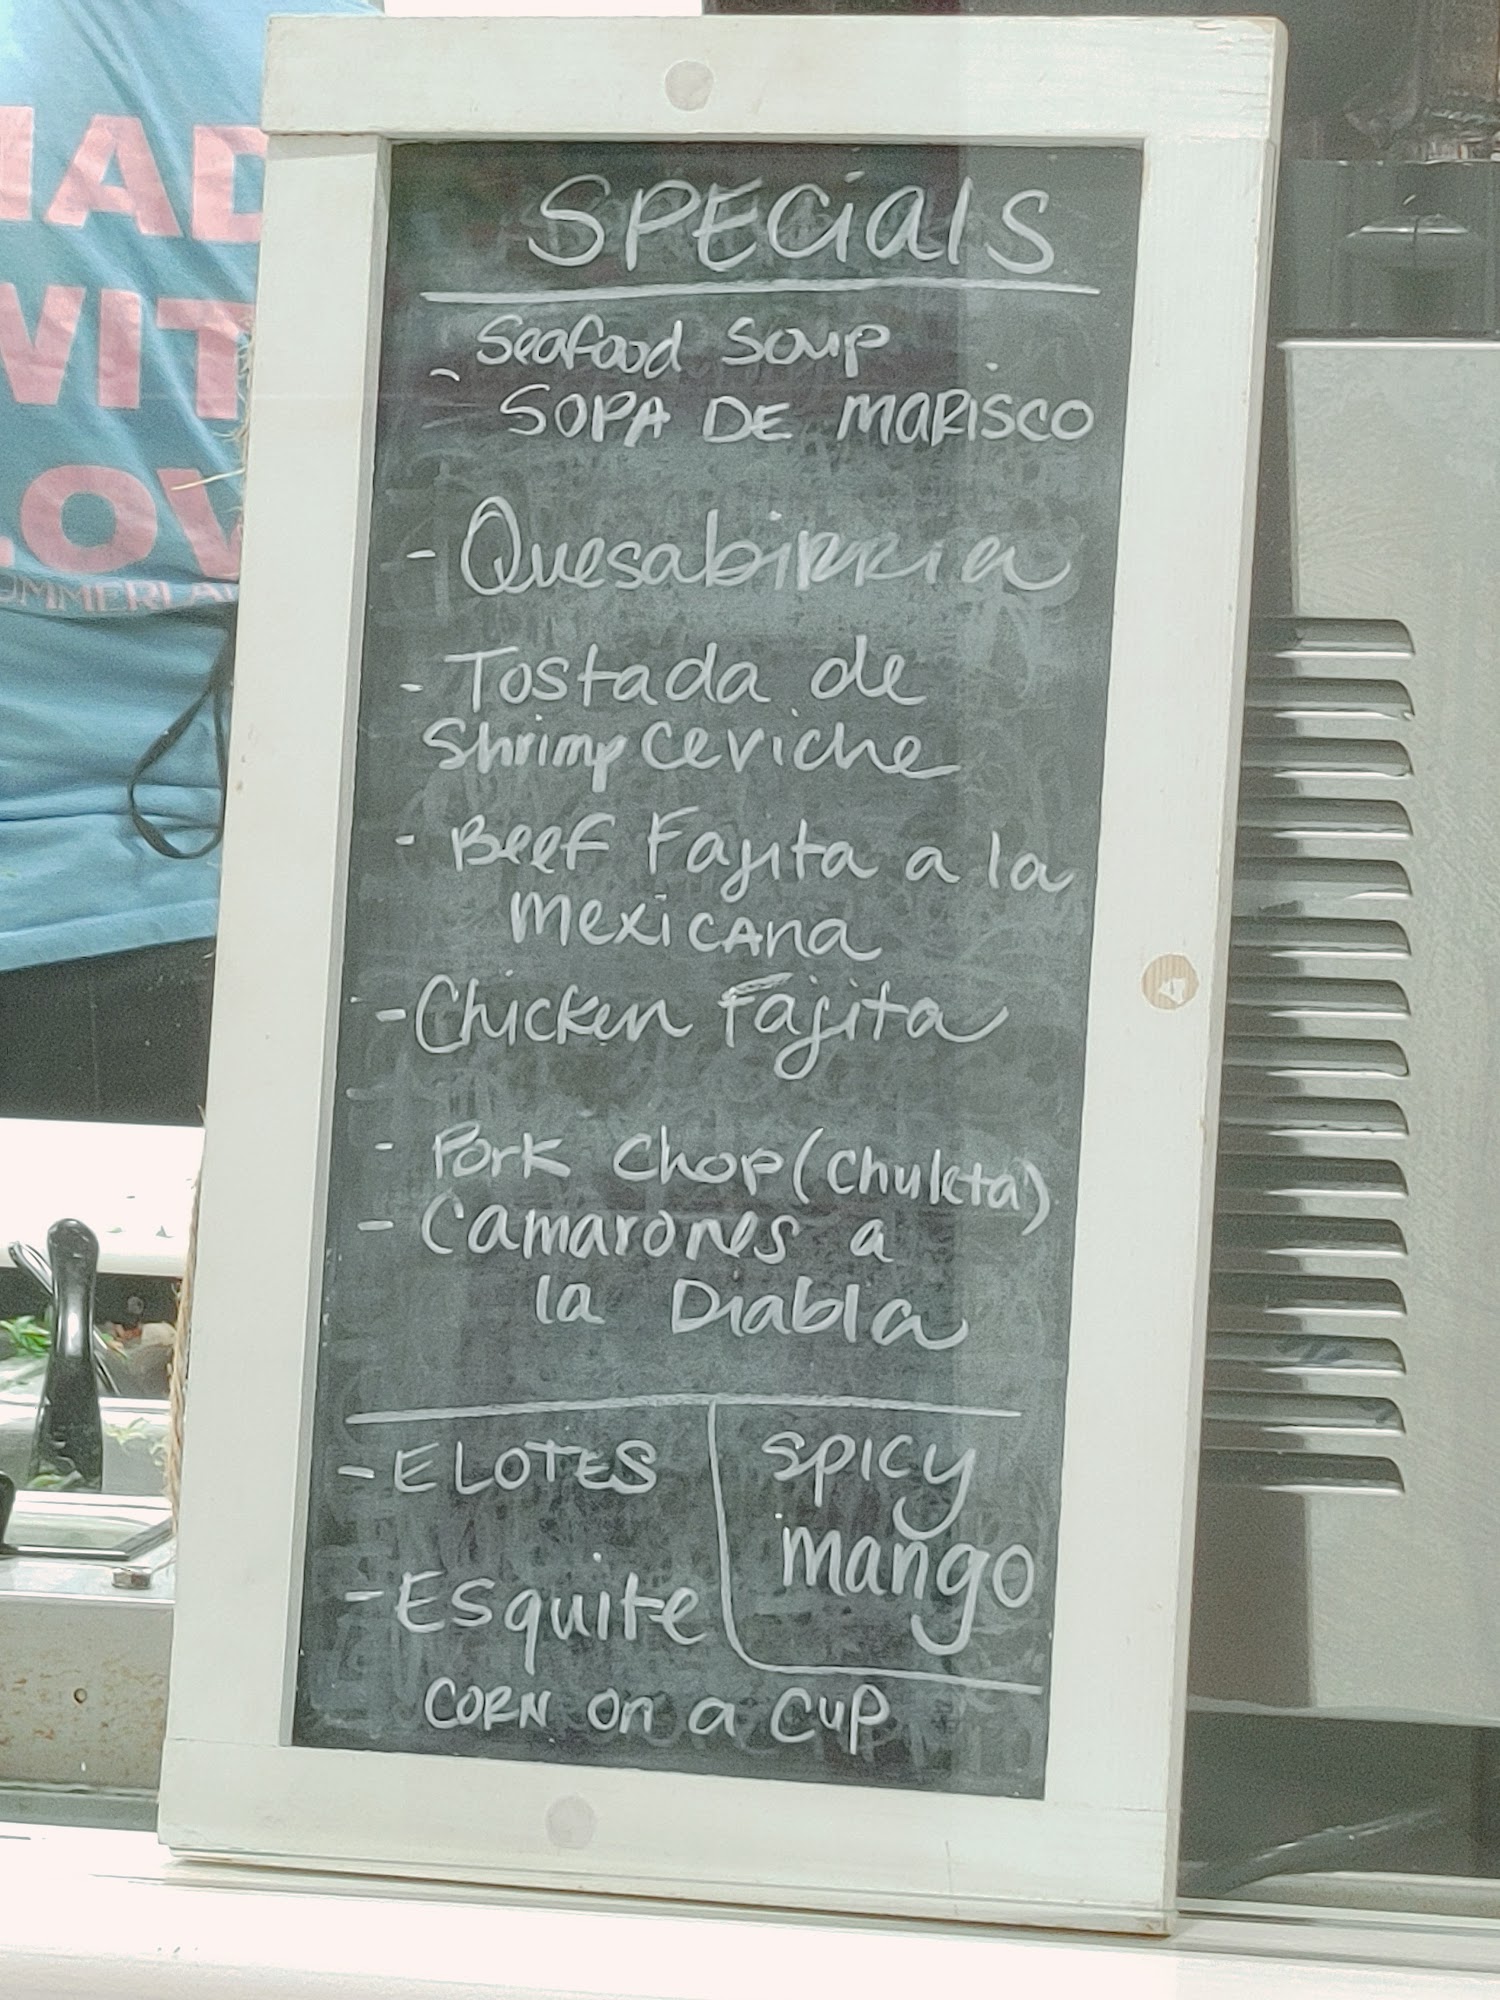 SPECialS
Seafood Soup
SOPA DE MARISCO
- Quesabirria
- Tostada de
Shrimp Ceviche
- Beef Fajita a la
mexicana
- Chicken Fajita
- Pork Chop (Chuleta)
- Camarones a
la Diabla
- ELOTES
spicy
mango
- Esquite
CORN on a CUP
WIT